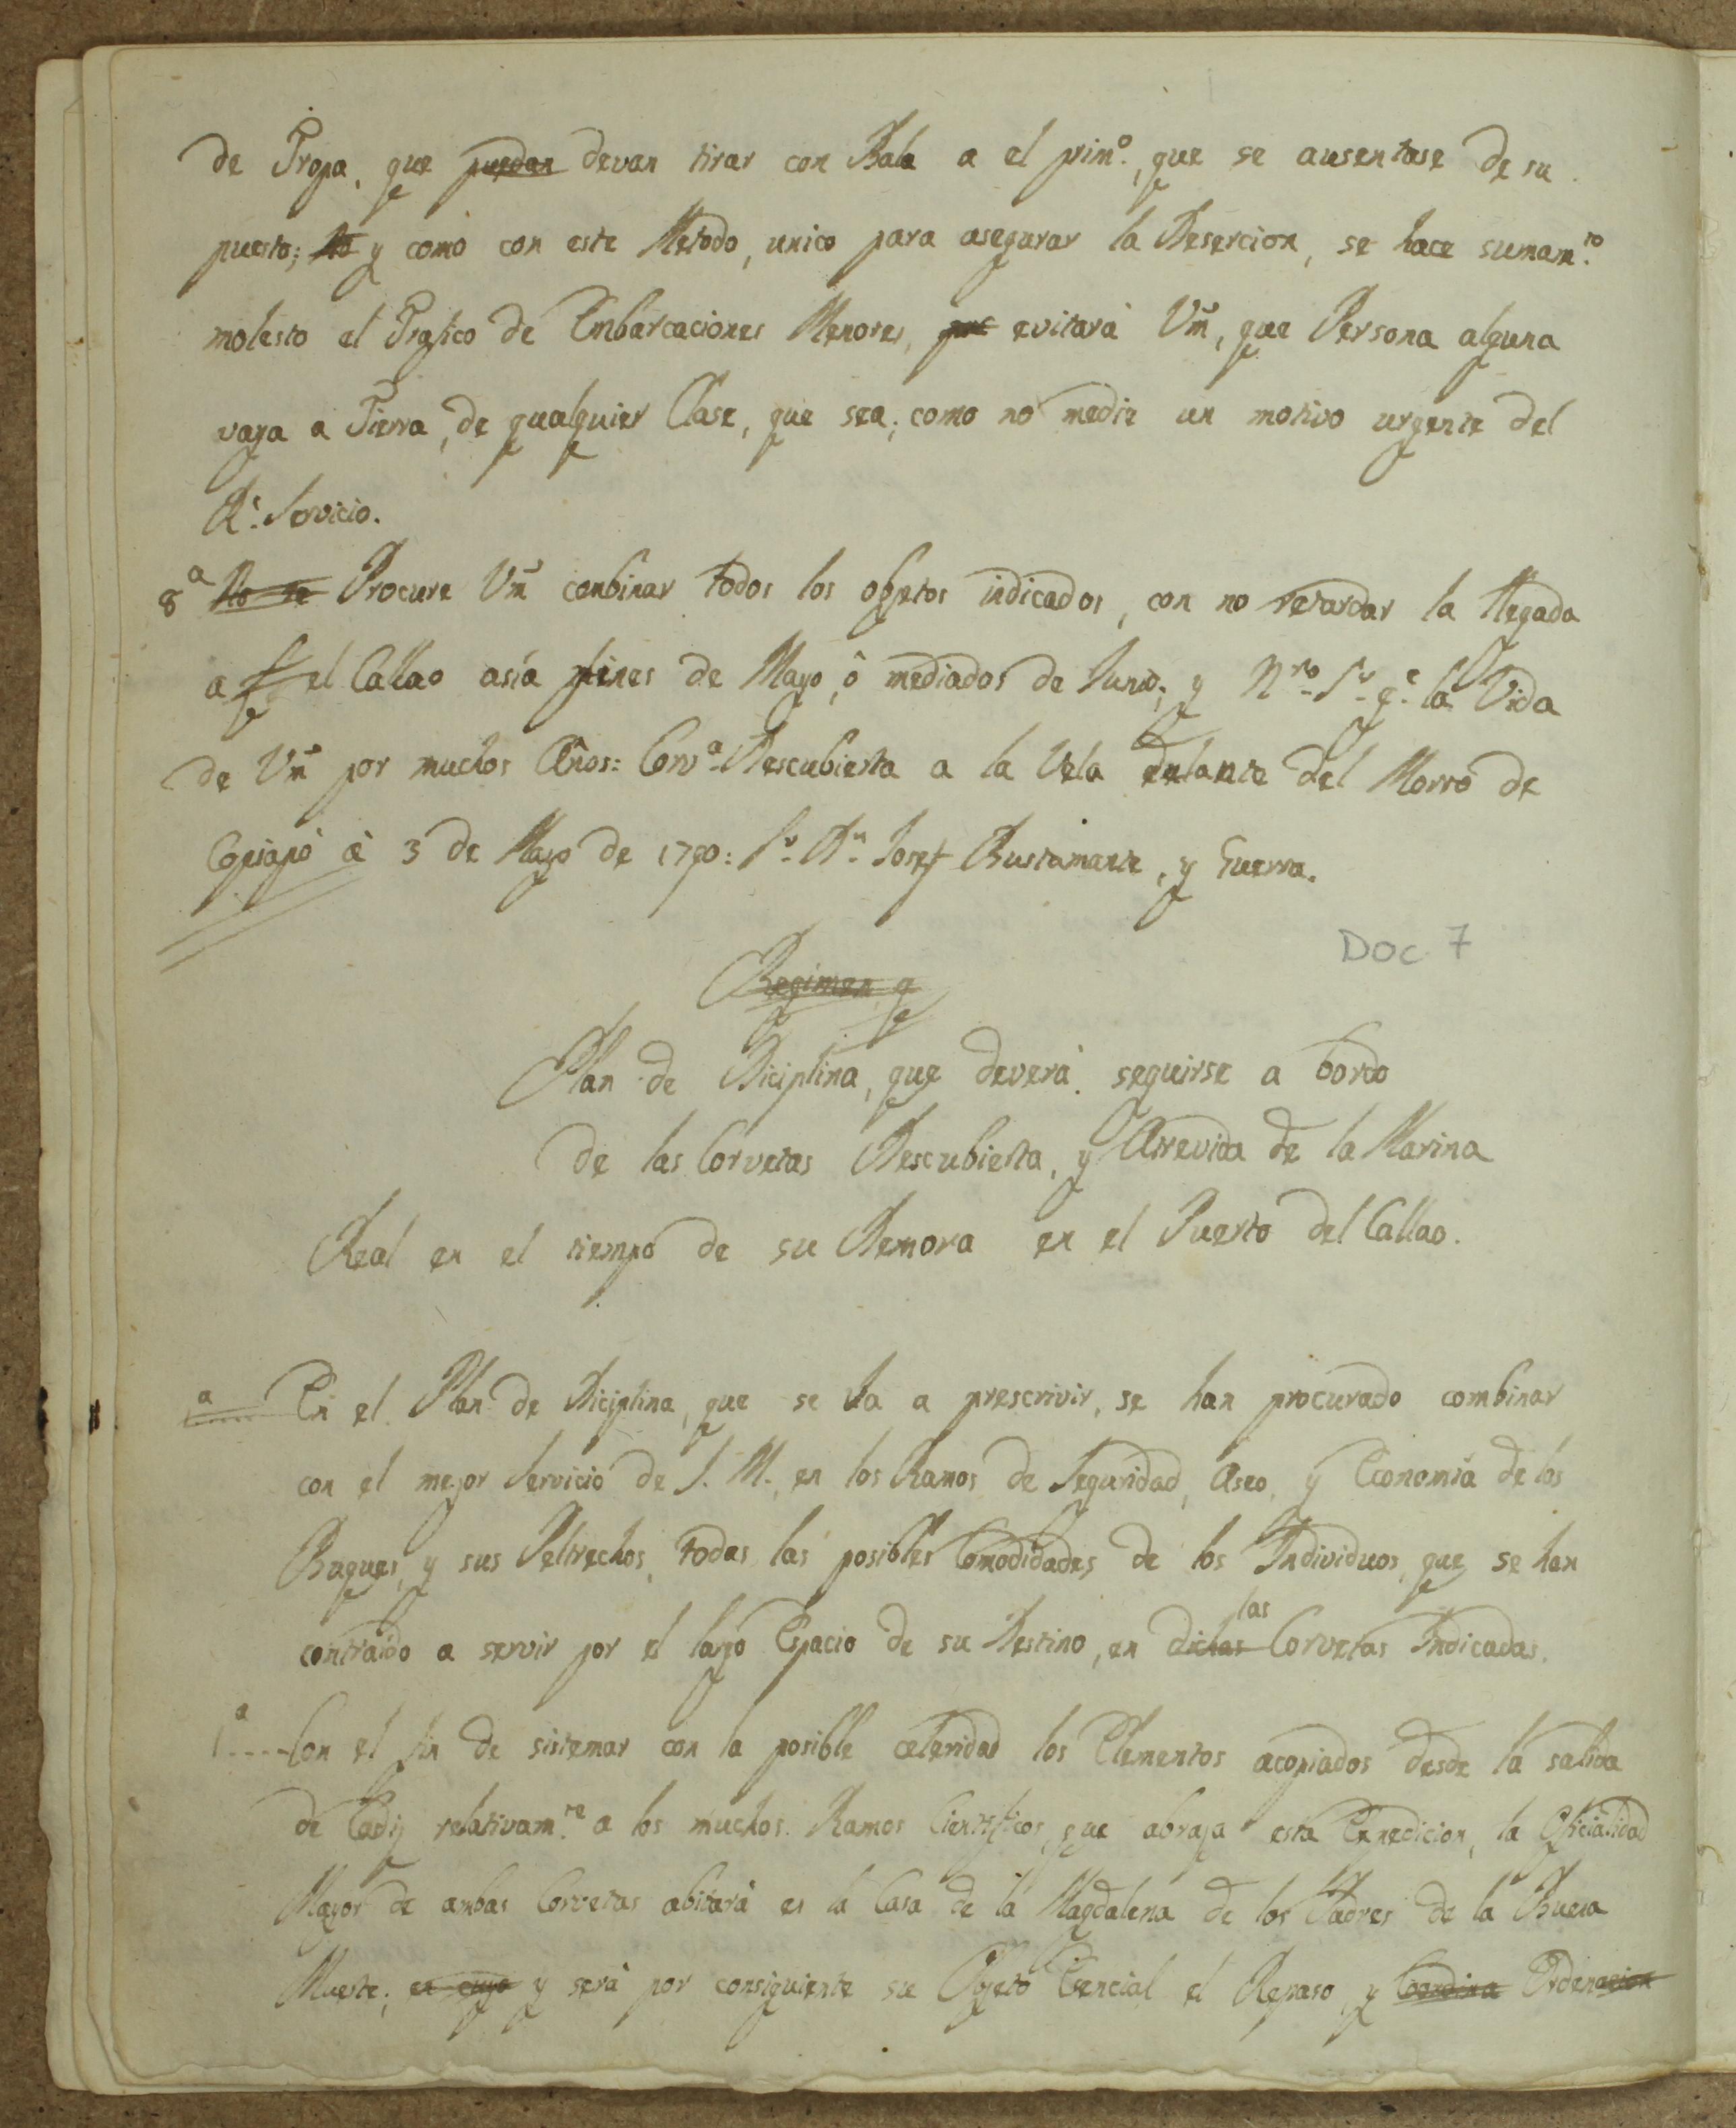 de Tropa, que puedan devan tirar con Bala a el prim.º, que se ausentase de su
puesto; No y como con este Metodo, unico para asegurar la Desercion, se hace sumam.to
molesto el Trafico de Embarcaciones Menores, que evitarà Vm, que Persona alguna
vaya a Tierra, de qualquier Clase, que sea; como no medie un motivo urgente del
R.l Servicio.
8ª No se Procure Vm conbinar todos los objetos indicados, con no retardar la llegada
a el Callao asía fines de Mayo, ò mediados de Junio; y N.ro S.r g.e la Vida
de Vm por muchos Años: Corv.a Descubierta a la Vela delante del Morro de
Copiapò à 3 de Mayo de 1790: S.r D.n Josef Bustamante, y Guerra.
Doc. 7
Regimen q
Plan de Diciplina, que deverà seguirse a bordo
de las Corvetas Descubierta, y Atrevida de la Marina
Real en el tiempo de su Demora en el Puerto del Callao.
En el Plan de Diciplina, que se va a prescrivir, se han procurado combinar
con el mejor Servicio de S. M., en los Ramos de Seguridad, Aseo, y Economía de los
Buques, y sus Peltrechos, todas las posibles Comodidades de los Individuos, que se han
contraído a servir por el largo Espacio de su Destino, en dichas las Corvetas Indicadas.
1ª....Con el fin de sistemar con la posible celeridad los Elementos acopiados desde la salida
de Cadiz relativam.te a los muchos Ramos Cientificos, que abraza esta Expedicion, la Oficialidad
Mayor de ambas Corvetas abitarà en la Casa de la Magdalena de los Padres de la Buena
Muerte; en cuyo y serà por consiguiente su Objeto Esencial el Repaso, y Coordina Ordenacion